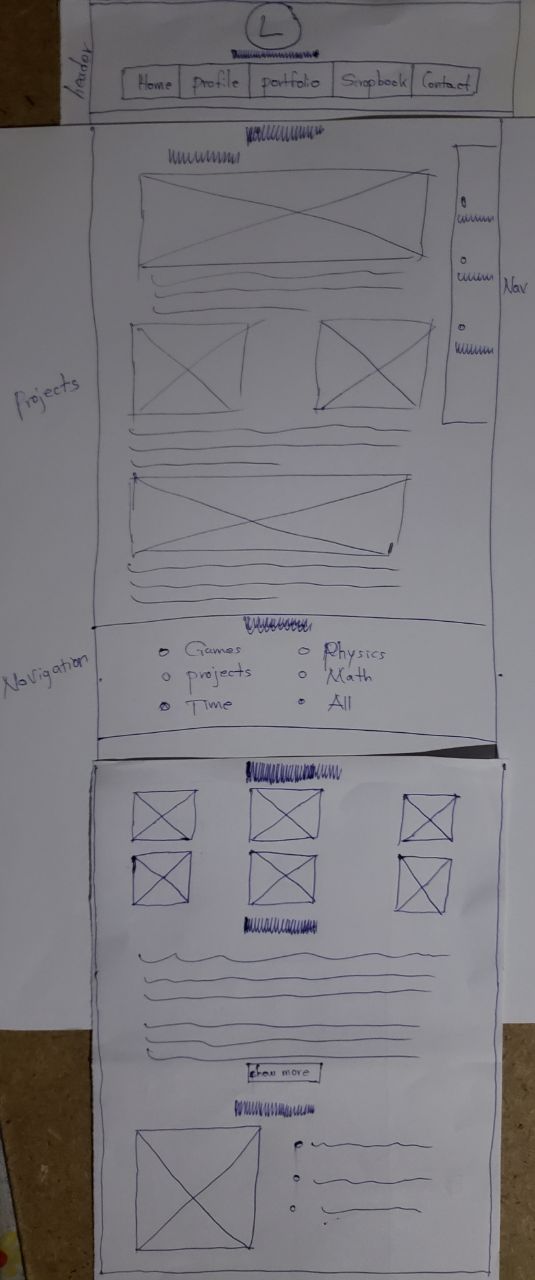 header
L
Home profile portfolio Scrapbook Contact
Nav
Projects
Navigation
Games Physics
projects Math
Time All
show more